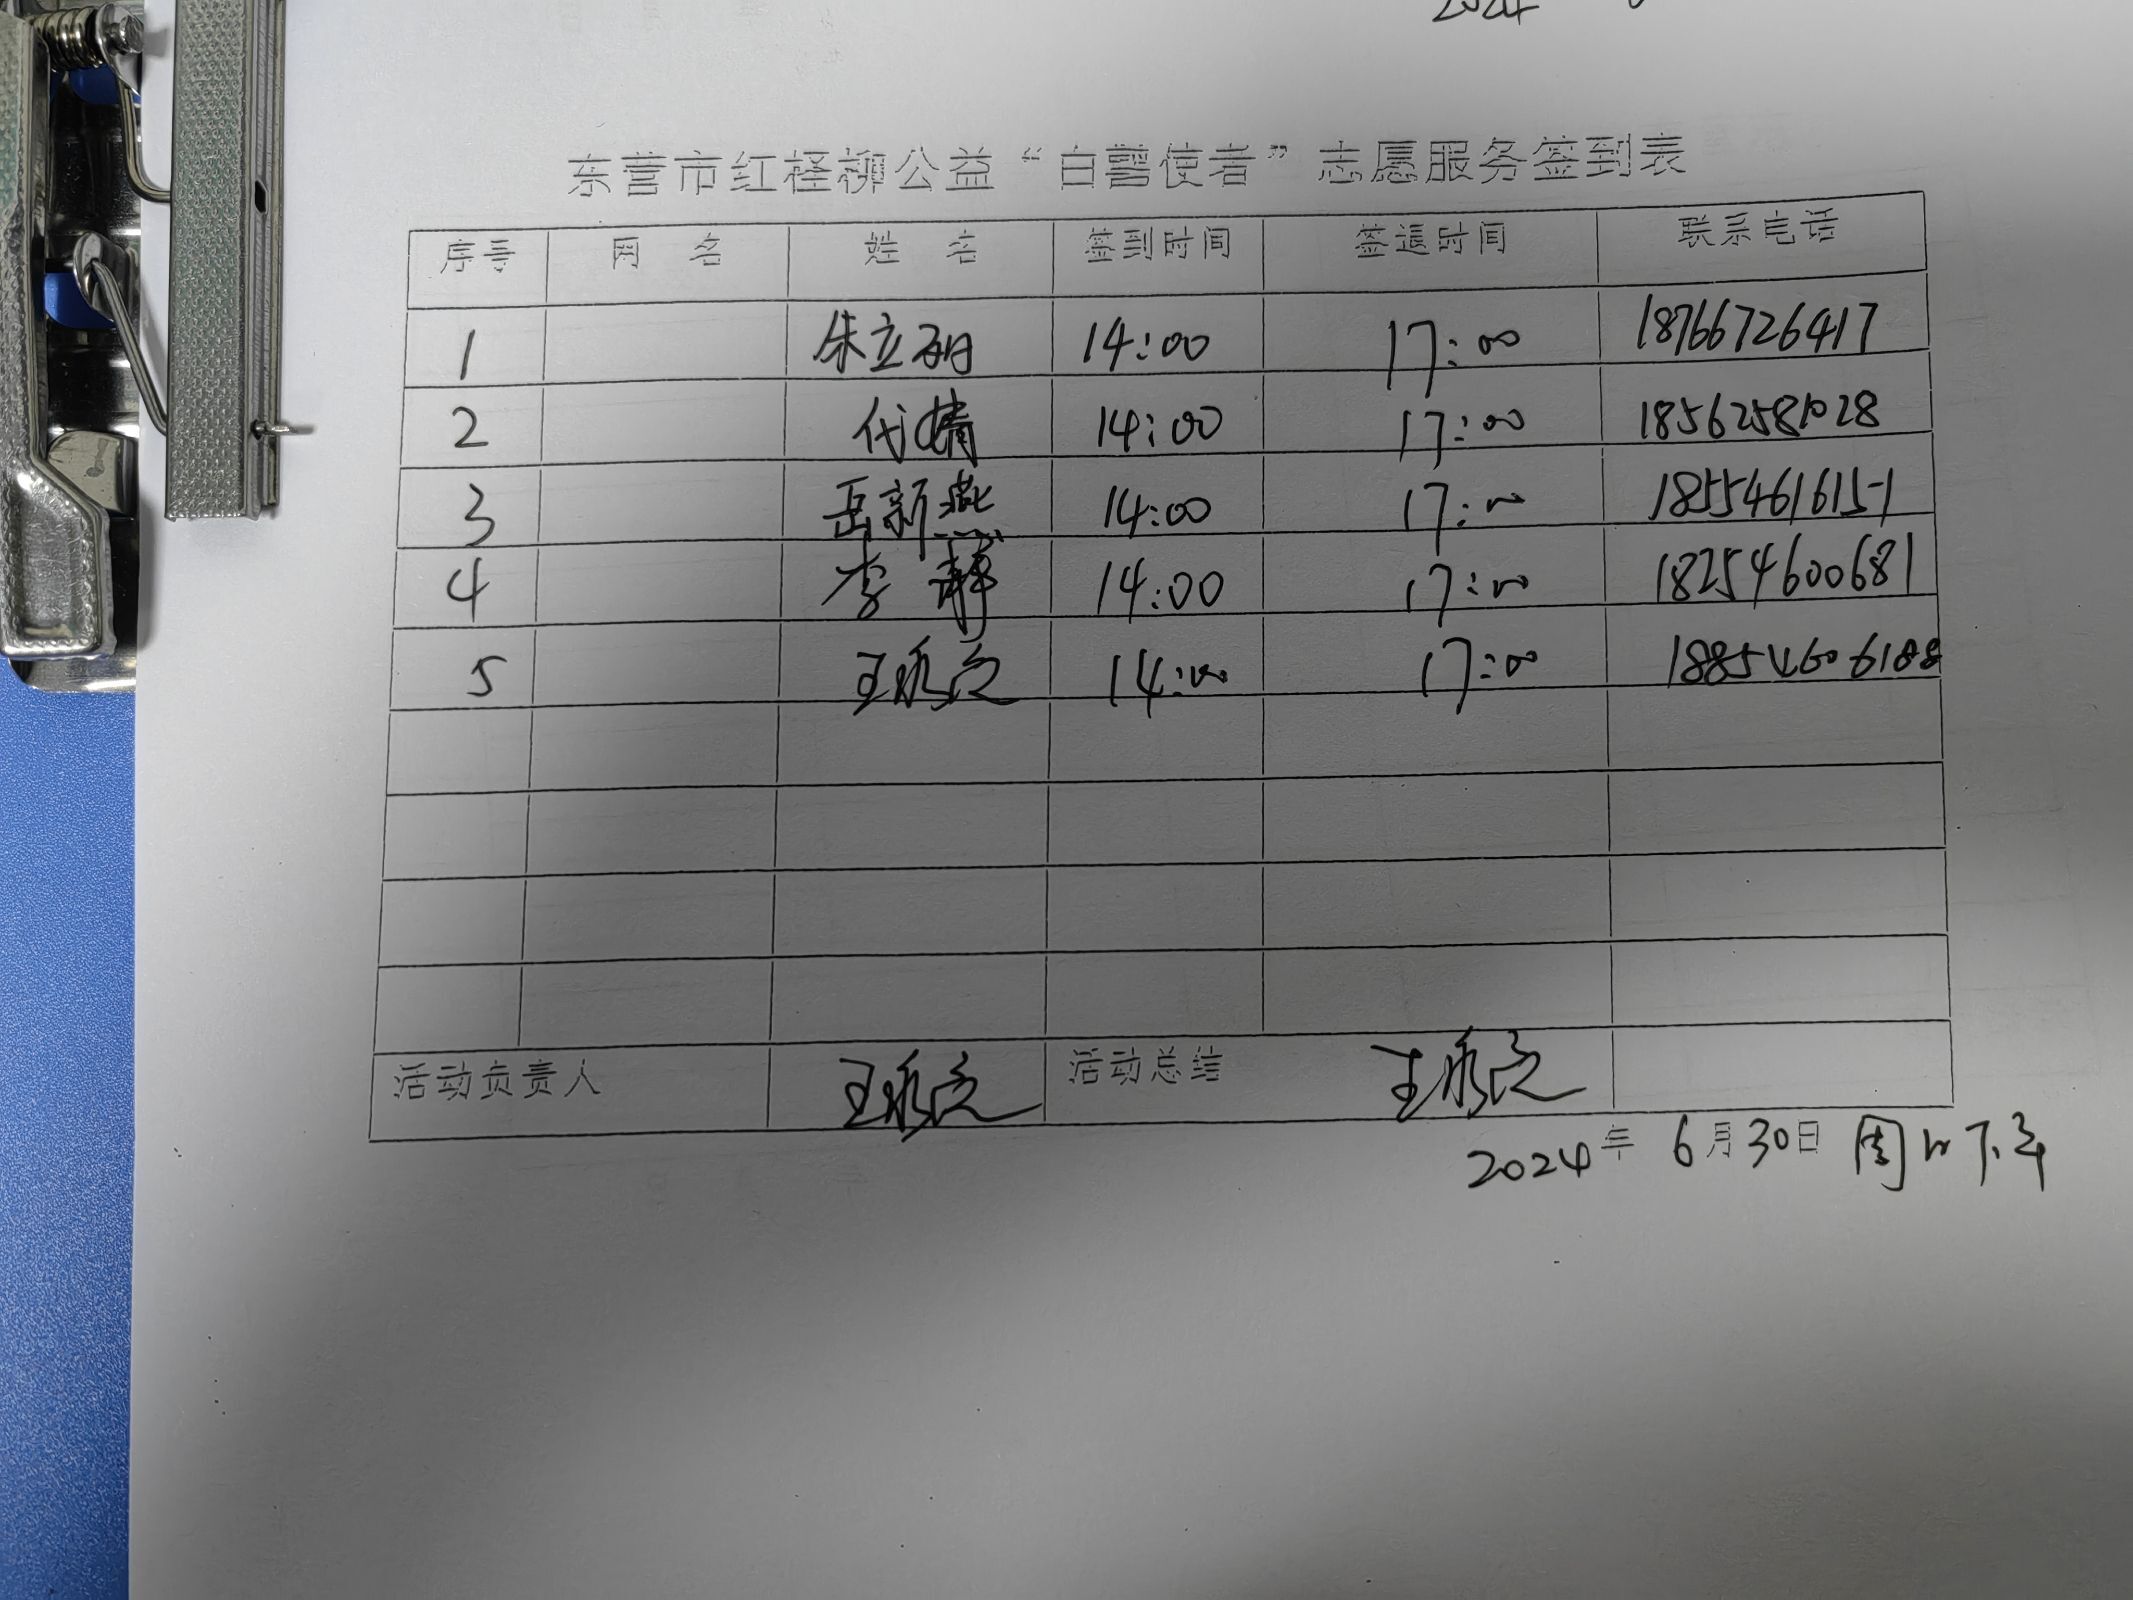 2024
东营市红柽柳公益“白鹭使者”志愿服务签到表
序号 网 名 姓 名 签到时间 签退时间 联系电话
1 朱立 14:00 17:00 18766726417
2 代婧 14:00 17:00 18562581028
3 岳新燕 14:00 17:00 18554616151
4 李 静 14:00 17:00 18254600681
5 王 14:00 17:00 18854606188
活动负责人 王 活动总结 王
2024年 6月30日 周日下午